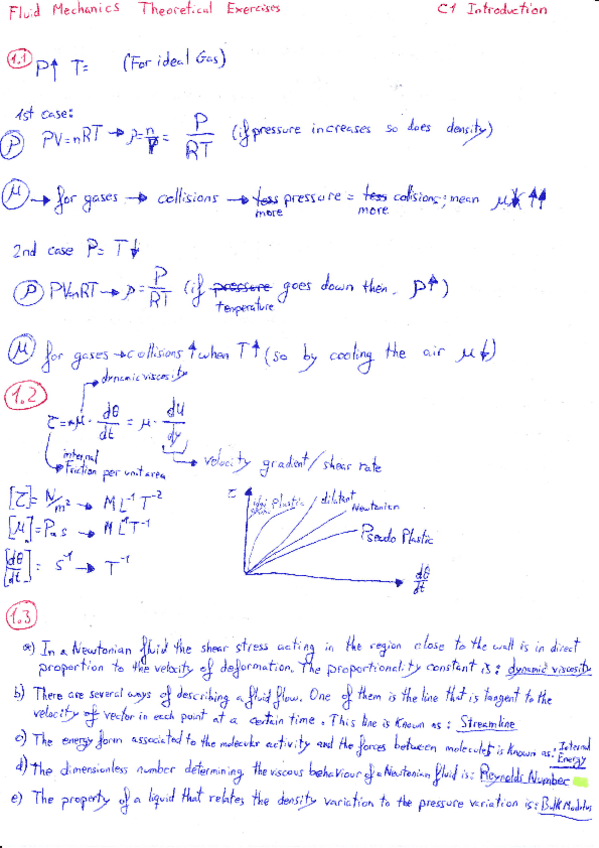 Fluid Mechanics Theoretical Exercises C1 Introduction
1.1 P↑ T= (For ideal Gas)
1st case:
ρ PV=nRT → ρ= n/V = P/RT (if pressure increases so does density)
μ → for gases → collisions → less pressure = less collisions; mean μ ↑↑
more more
2nd case P= T↓
ρ PV=nRT → ρ= P/RT (if pressure goes down then ρ↑)
temperature
μ for gases → collisions ↑ when T↑ (so by cooling the air μ↓)
→ dynamic viscosity
1.2
τ = μ · dθ/dt = μ · du/dy
internal
Friction per unit area
→ velocity gradient/shear rate
[τ]= N/m² → M L⁻¹ T⁻²
[μ]= Pa s → M L⁻¹ T⁻¹
[dθ/dt] = s⁻¹ → T⁻¹
τ
Plastic
dilatant
Newtonian
Pseudo Plastic
dθ/dt
1.3
a) In a Newtonian fluid the shear stress acting in the region close to the wall is in direct
proportion to the velocity of deformation. The proportionality constant is: dynamic viscosity
b) There are several ways of describing a fluid flow. One of them is the line that is tangent to the
velocity of vector in each point at a certain time. This line is known as: Streamline
c) The energy form associated to the molecular activity and the forces between molecules is known as: Internal
Energy
d) The dimensionless number determining the viscous behaviour of a Newtonian fluid is: Reynolds Number
e) The property of a liquid that relates the density variation to the pressure variation is: Bulk Modulus